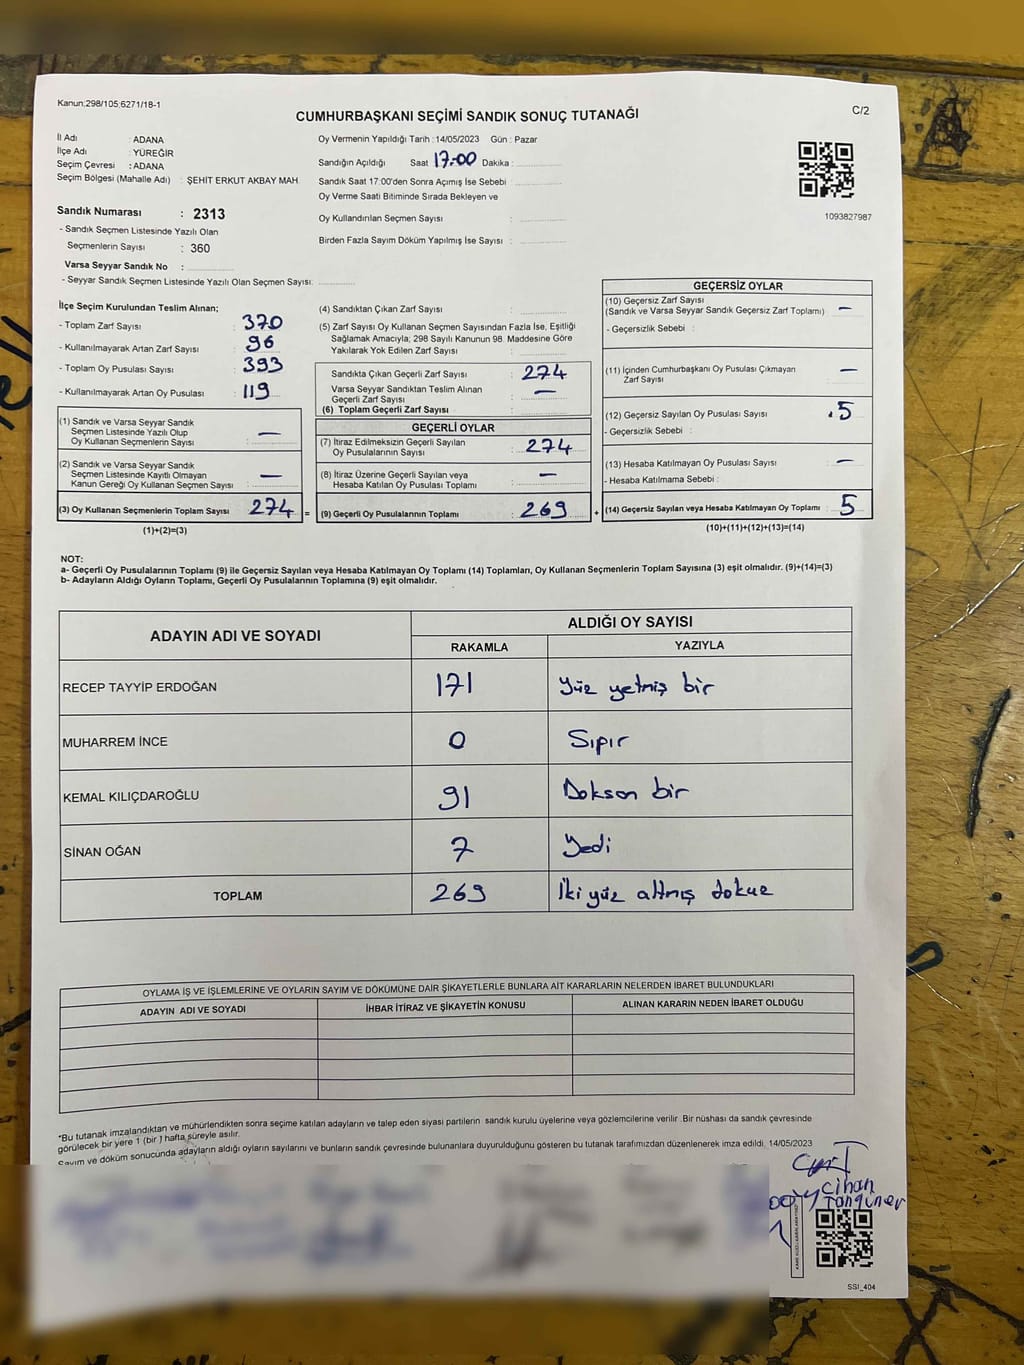 Kanun:298/105;6271/18-1
CUMHURBAŞKANI SEÇİMİ SANDIK SONUÇ TUTANAĞI
C/2
İl Adı : ADANA
İlçe Adı : YÜREĞİR
Seçim Çevresi : ADANA
Seçim Bölgesi (Mahalle Adı) : ŞEHİT ERKUT AKBAY MAH.
Sandık Numarası : 2313
- Sandık Seçmen Listesinde Yazılı Olan
Seçmenlerin Sayısı : 360
Varsa Seyyar Sandık No :
- Seyyar Sandık Seçmen Listesinde Yazılı Olan Seçmen Sayısı:
Oy Vermenin Yapıldığı Tarih : 14/05/2023 Gün : Pazar
Sandığın Açıldığı Saat 17:00 Dakika :
Sandık Saat 17:00'den Sonra Açımış İse Sebebi :
Oy Verme Saati Bitiminde Sırada Bekleyen ve
Oy Kullandırılan Seçmen Sayısı :
Birden Fazla Sayım Döküm Yapılmış İse Sayısı :
1093827987
İlçe Seçim Kurulundan Teslim Alınan;
- Toplam Zarf Sayısı : 370
- Kullanılmayarak Artan Zarf Sayısı : 96
- Toplam Oy Pusulası Sayısı : 393
- Kullanılmayarak Artan Oy Pusulası : 119
(1) Sandık ve Varsa Seyyar Sandık
Seçmen Listesinde Yazılı Olup
Oy Kullanan Seçmenlerin Sayısı : —
(2) Sandık ve Varsa Seyyar Sandık
Seçmen Listesinde Kayıtlı Olmayan
Kanun Gereği Oy Kullanan Seçmen Sayısı : —
(3) Oy Kullanan Seçmenlerin Toplam Sayısı : 274
(1)+(2)=(3)
(4) Sandıktan Çıkan Zarf Sayısı :
(5) Zarf Sayısı Oy Kullanan Seçmen Sayısından Fazla İse, Eşitliği
Sağlamak Amacıyla; 298 Sayılı Kanunun 98. Maddesine Göre
Yakılarak Yok Edilen Zarf Sayısı :
Sandıkta Çıkan Geçerli Zarf Sayısı : 274
Varsa Seyyar Sandıktan Teslim Alınan
Geçerli Zarf Sayısı : —
(6) Toplam Geçerli Zarf Sayısı :
GEÇERLİ OYLAR
(7) İtiraz Edilmeksizin Geçerli Sayılan
Oy Pusulalarının Sayısı : 274
(8) İtiraz Üzerine Geçerli Sayılan veya
Hesaba Katılan Oy Pusulası Toplamı : —
= (9) Geçerli Oy Pusulalarının Toplamı : 269 +
GEÇERSİZ OYLAR
(10) Geçersiz Zarf Sayısı
(Sandık ve Varsa Seyyar Sandık Geçersiz Zarf Toplamı) : —
- Geçersizlik Sebebi :
(11) İçinden Cumhurbaşkanı Oy Pusulası Çıkmayan
Zarf Sayısı : —
(12) Geçersiz Sayılan Oy Pusulası Sayısı : 5
- Geçersizlik Sebebi :
(13) Hesaba Katılmayan Oy Pusulası Sayısı : —
- Hesaba Katılmama Sebebi :
(14) Geçersiz Sayılan veya Hesaba Katılmayan Oy Toplamı : 5
(10)+(11)+(12)+(13)=(14)
NOT:
a- Geçerli Oy Pusulalarının Toplamı (9) ile Geçersiz Sayılan veya Hesaba Katılmayan Oy Toplamı (14) Toplamları, Oy Kullanan Seçmenlerin Toplam Sayısına (3) eşit olmalıdır. (9)+(14)=(3)
b- Adayların Aldığı Oyların Toplamı, Geçerli Oy Pusulalarının Toplamına (9) eşit olmalıdır.
ADAYIN ADI VE SOYADI ALDIĞI OY SAYISI
RAKAMLA YAZIYLA
RECEP TAYYİP ERDOĞAN 171 Yüz yetmiş bir
MUHARREM İNCE 0 Sıpır
KEMAL KILIÇDAROĞLU 91 Doksan bir
SİNAN OĞAN 7 Yedi
TOPLAM 269 İki yüz altmış dokuz
OYLAMA İŞ VE İŞLEMLERİNE VE OYLARIN SAYIM VE DÖKÜMÜNE DAİR ŞİKAYETLERLE BUNLARA AİT KARARLARIN NELERDEN İBARET BULUNDUKLARI
ADAYIN ADI VE SOYADI İHBAR İTİRAZ VE ŞİKAYETİN KONUSU ALINAN KARARIN NEDEN İBARET OLDUĞU
*Bu tutanak imzalandıktan ve mühürlendikten sonra seçime katılan adayların ve talep eden siyasi partilerin sandık kurulu üyelerine veya gözlemcilerine verilir. Bir nüshası da sandık çevresinde
görülecek bir yere 1 (bir ) hafta süreyle asılır.
Sayım ve döküm sonucunda adayların aldığı oyların sayılarını ve bunların sandık çevresinde bulunanlara duyurulduğunu gösteren bu tutanak tarafımızdan düzenlenerek imza edildi. 14/05/2023
Cihan
SSİ_404